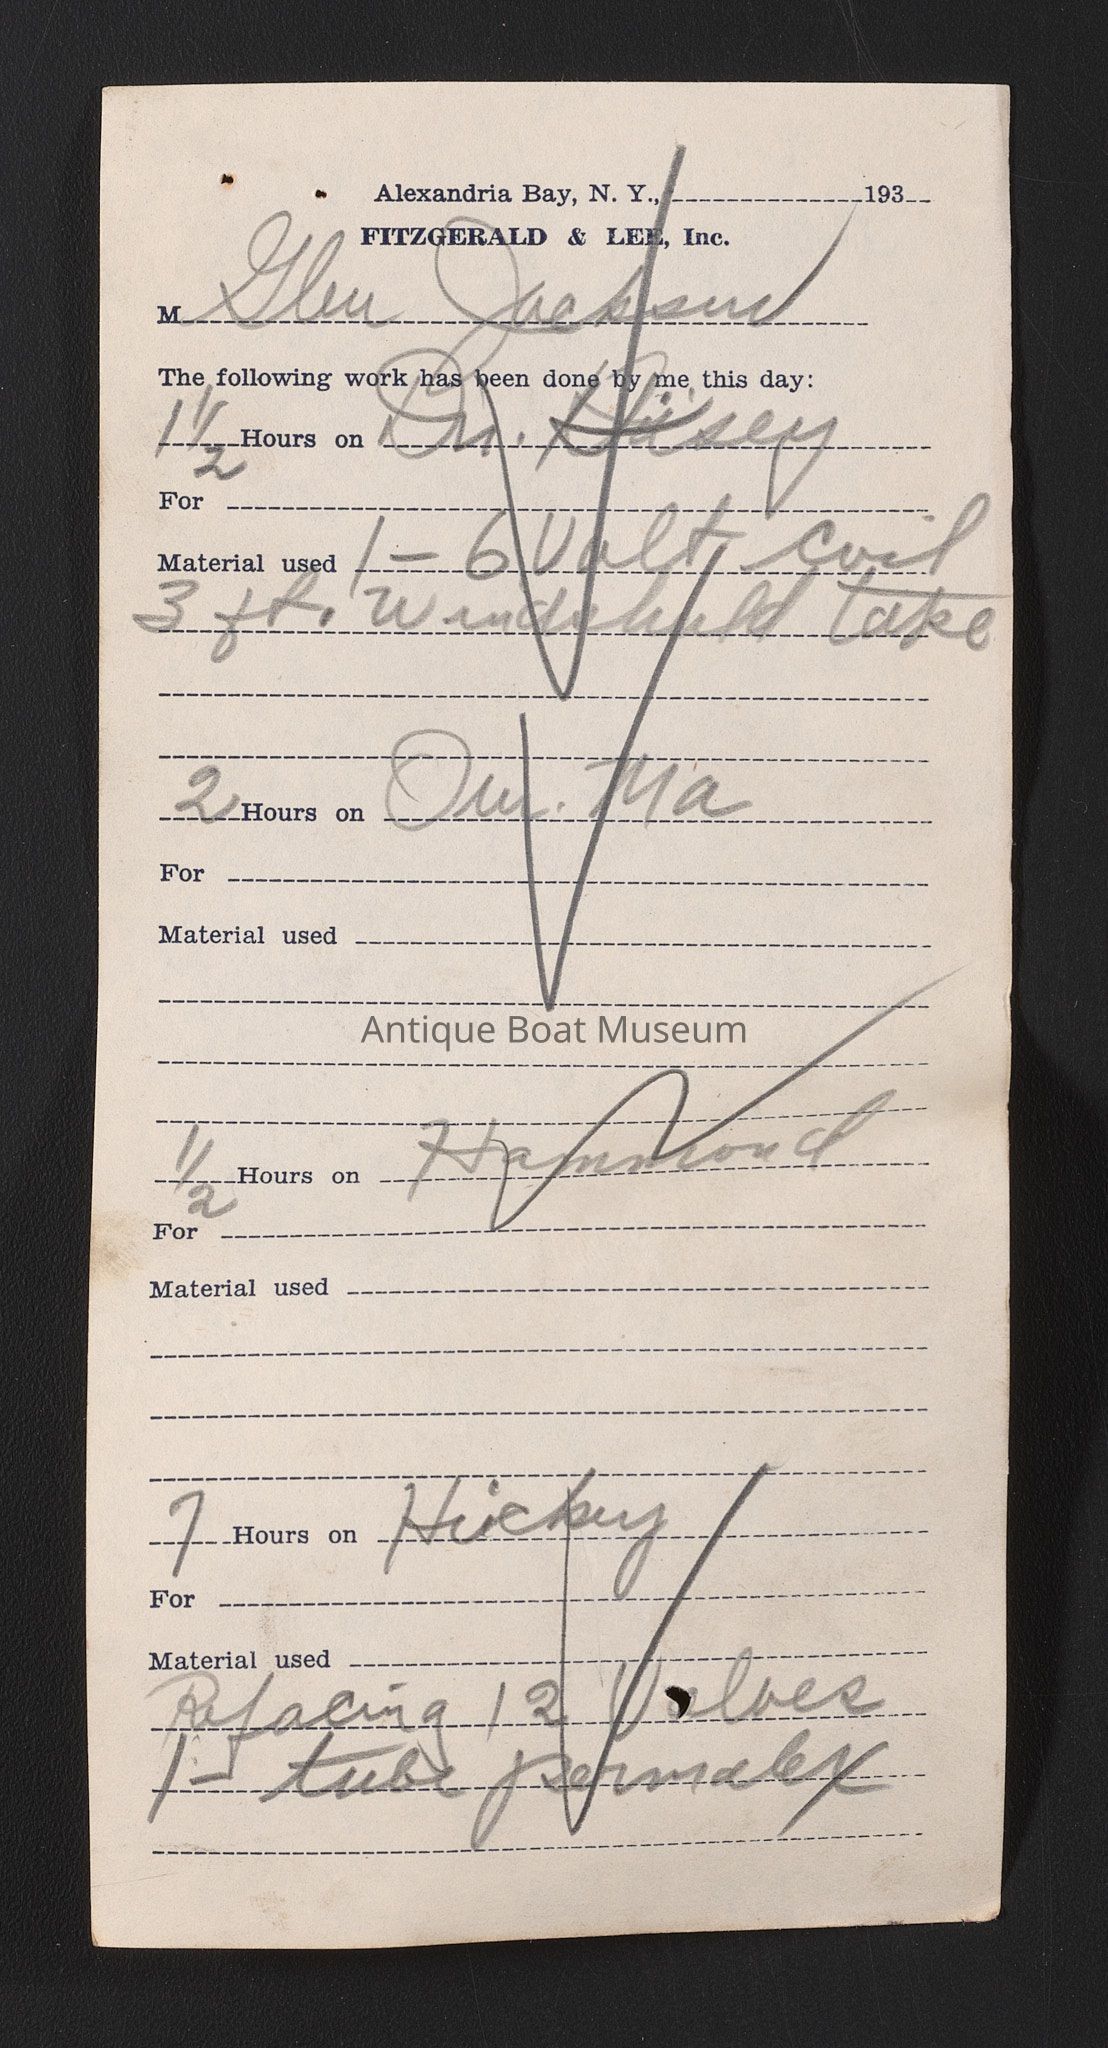 Alexandria Bay, N. Y., 193
FITZGERALD & LEE, Inc.
M Glen Jackson
The following work has been done by me this day:
1 1/2 Hours on Dr.
For
Material used 1 - 6 Volt coil
3 ft. Windshield
2 Hours on Ma
For
Material used
Antique Boat Museum
1/2 Hours on Hammond
For
Material used
7 Hours on Hickey
For
Material used
Refacing 12 Valves
1 - tube permalex